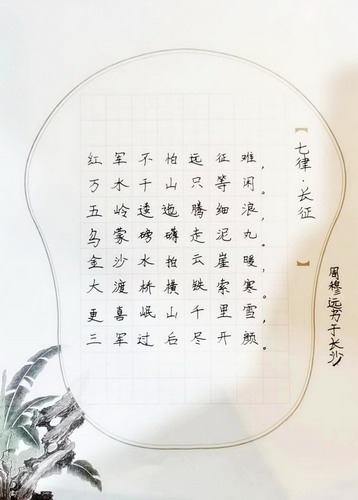 【七律·长征】
红军不怕远征难，
万水千山只等闲。
五岭逶迤腾细浪，
乌蒙磅礴走泥丸。
金沙水拍云崖暖，
大渡桥横铁索寒。
更喜岷山千里雪，
三军过后尽开颜。
周穆远书于长沙